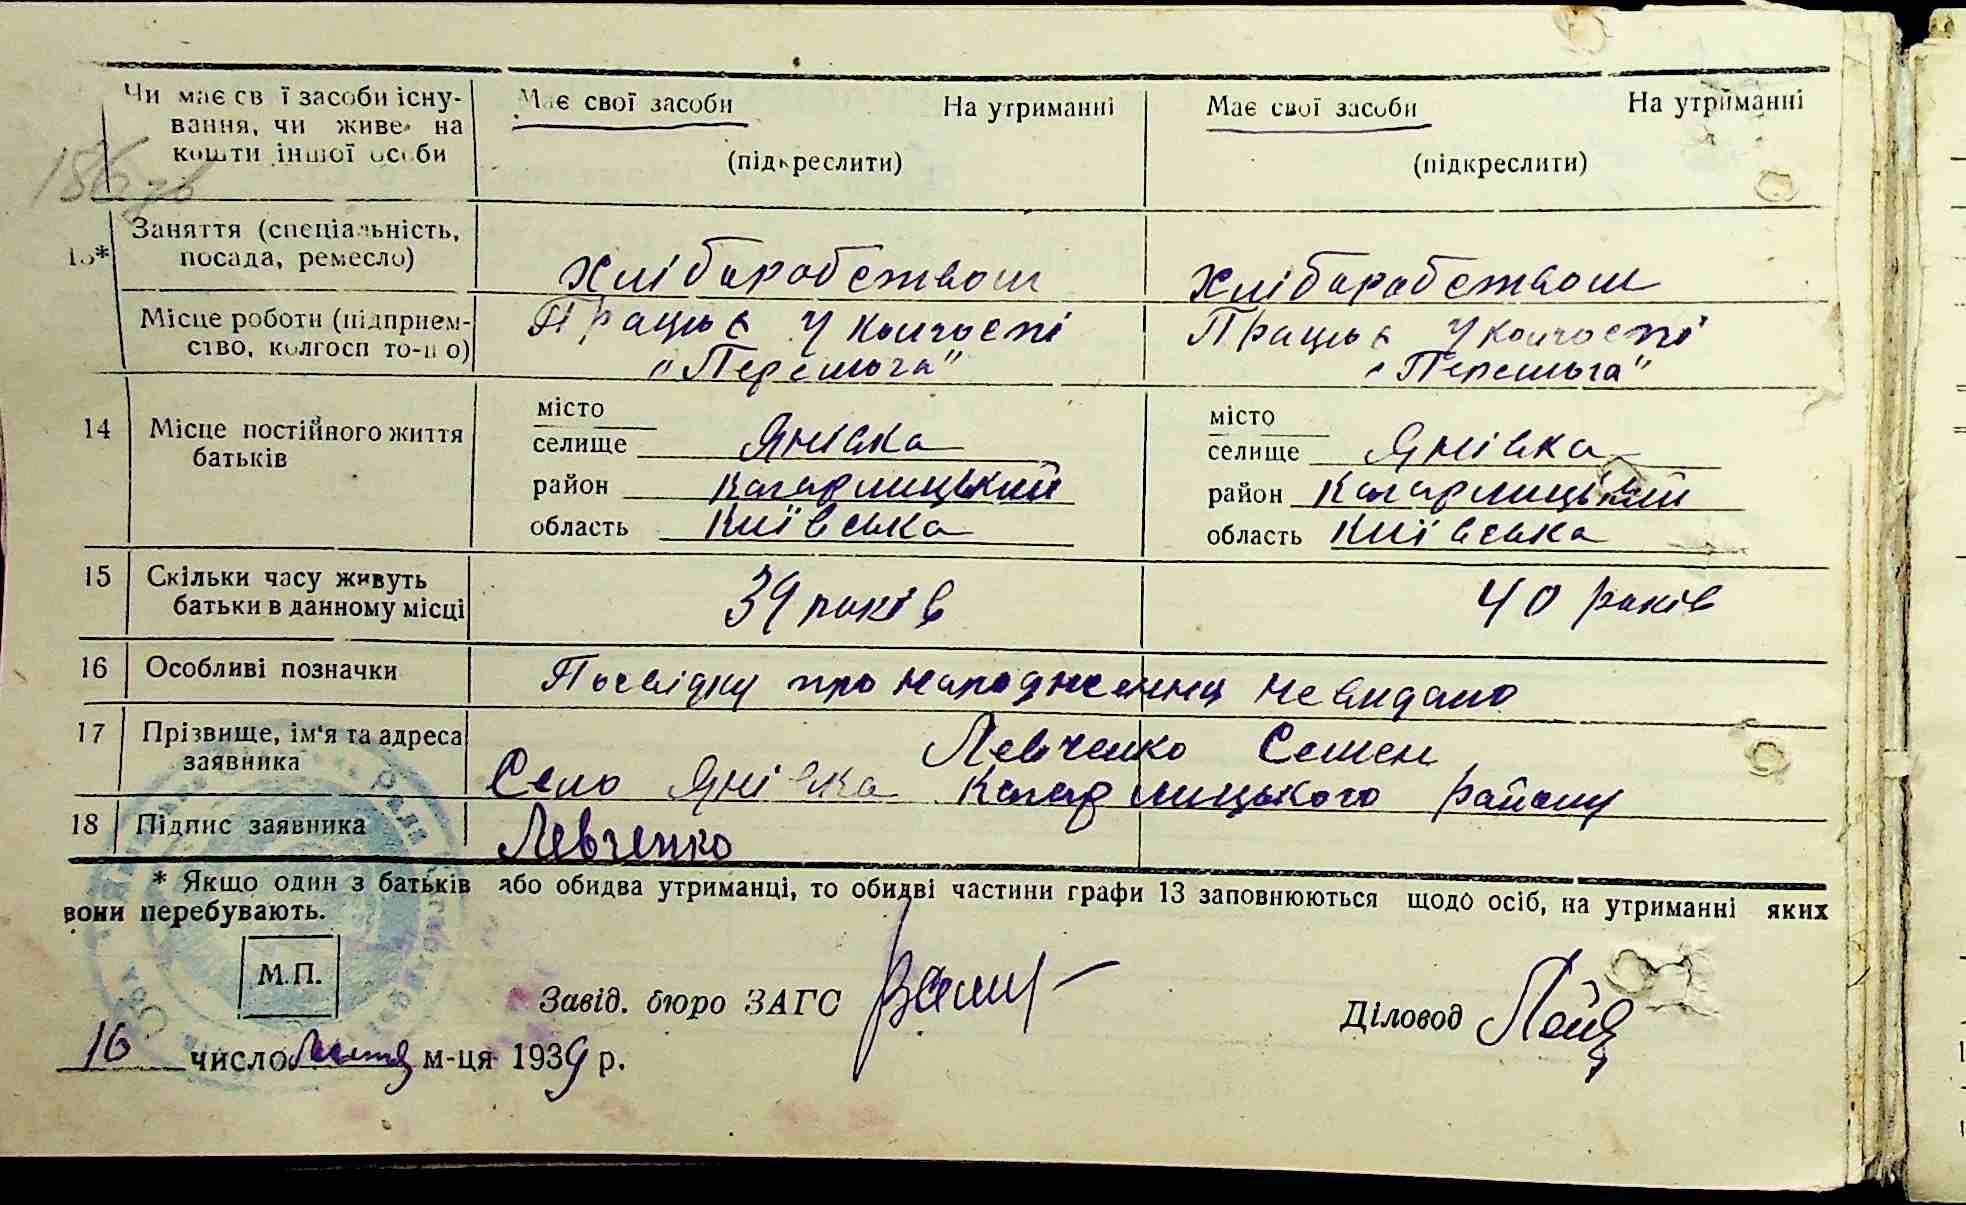 Чи має св ї засоби існу-
вання, чи живе на
кошти іншої особи
Має свої засоби На утриманні
(підкреслити)
Має свої засоби На утриманні
(підкреслити)
13*
Заняття (спеціальність,
посада, ремесло)
Хліборобством
Хліборобством
Місце роботи (підприєм-
ство, колгосп то-що)
Працює у колгоспі
"Перемога"
Працює у колгоспі
"Перемога"
14 Місце постійного життя
батьків
місто
селище Янівка
район Кагарлицький
область Київська
місто
селище Янівка
район Кагарлицький
область Київська
15 Скільки часу живуть
батьки в данному місці
39 років
40 років
16 Особливі позначки
Посвідку про народження не видано
17 Прізвище, ім'я та адреса
заявника
Левченко Семен
Село Янівка Кагарлицького району
18 Підпис заявника
Левченко
* Якщо один з батьків або обидва утриманці, то обидві частини графи 13 заповнюються щодо осіб, на утриманні яких
вони перебувають.
М.П.
Завід. бюро ЗАГС
Діловод
16 число м-ця 1939 р.